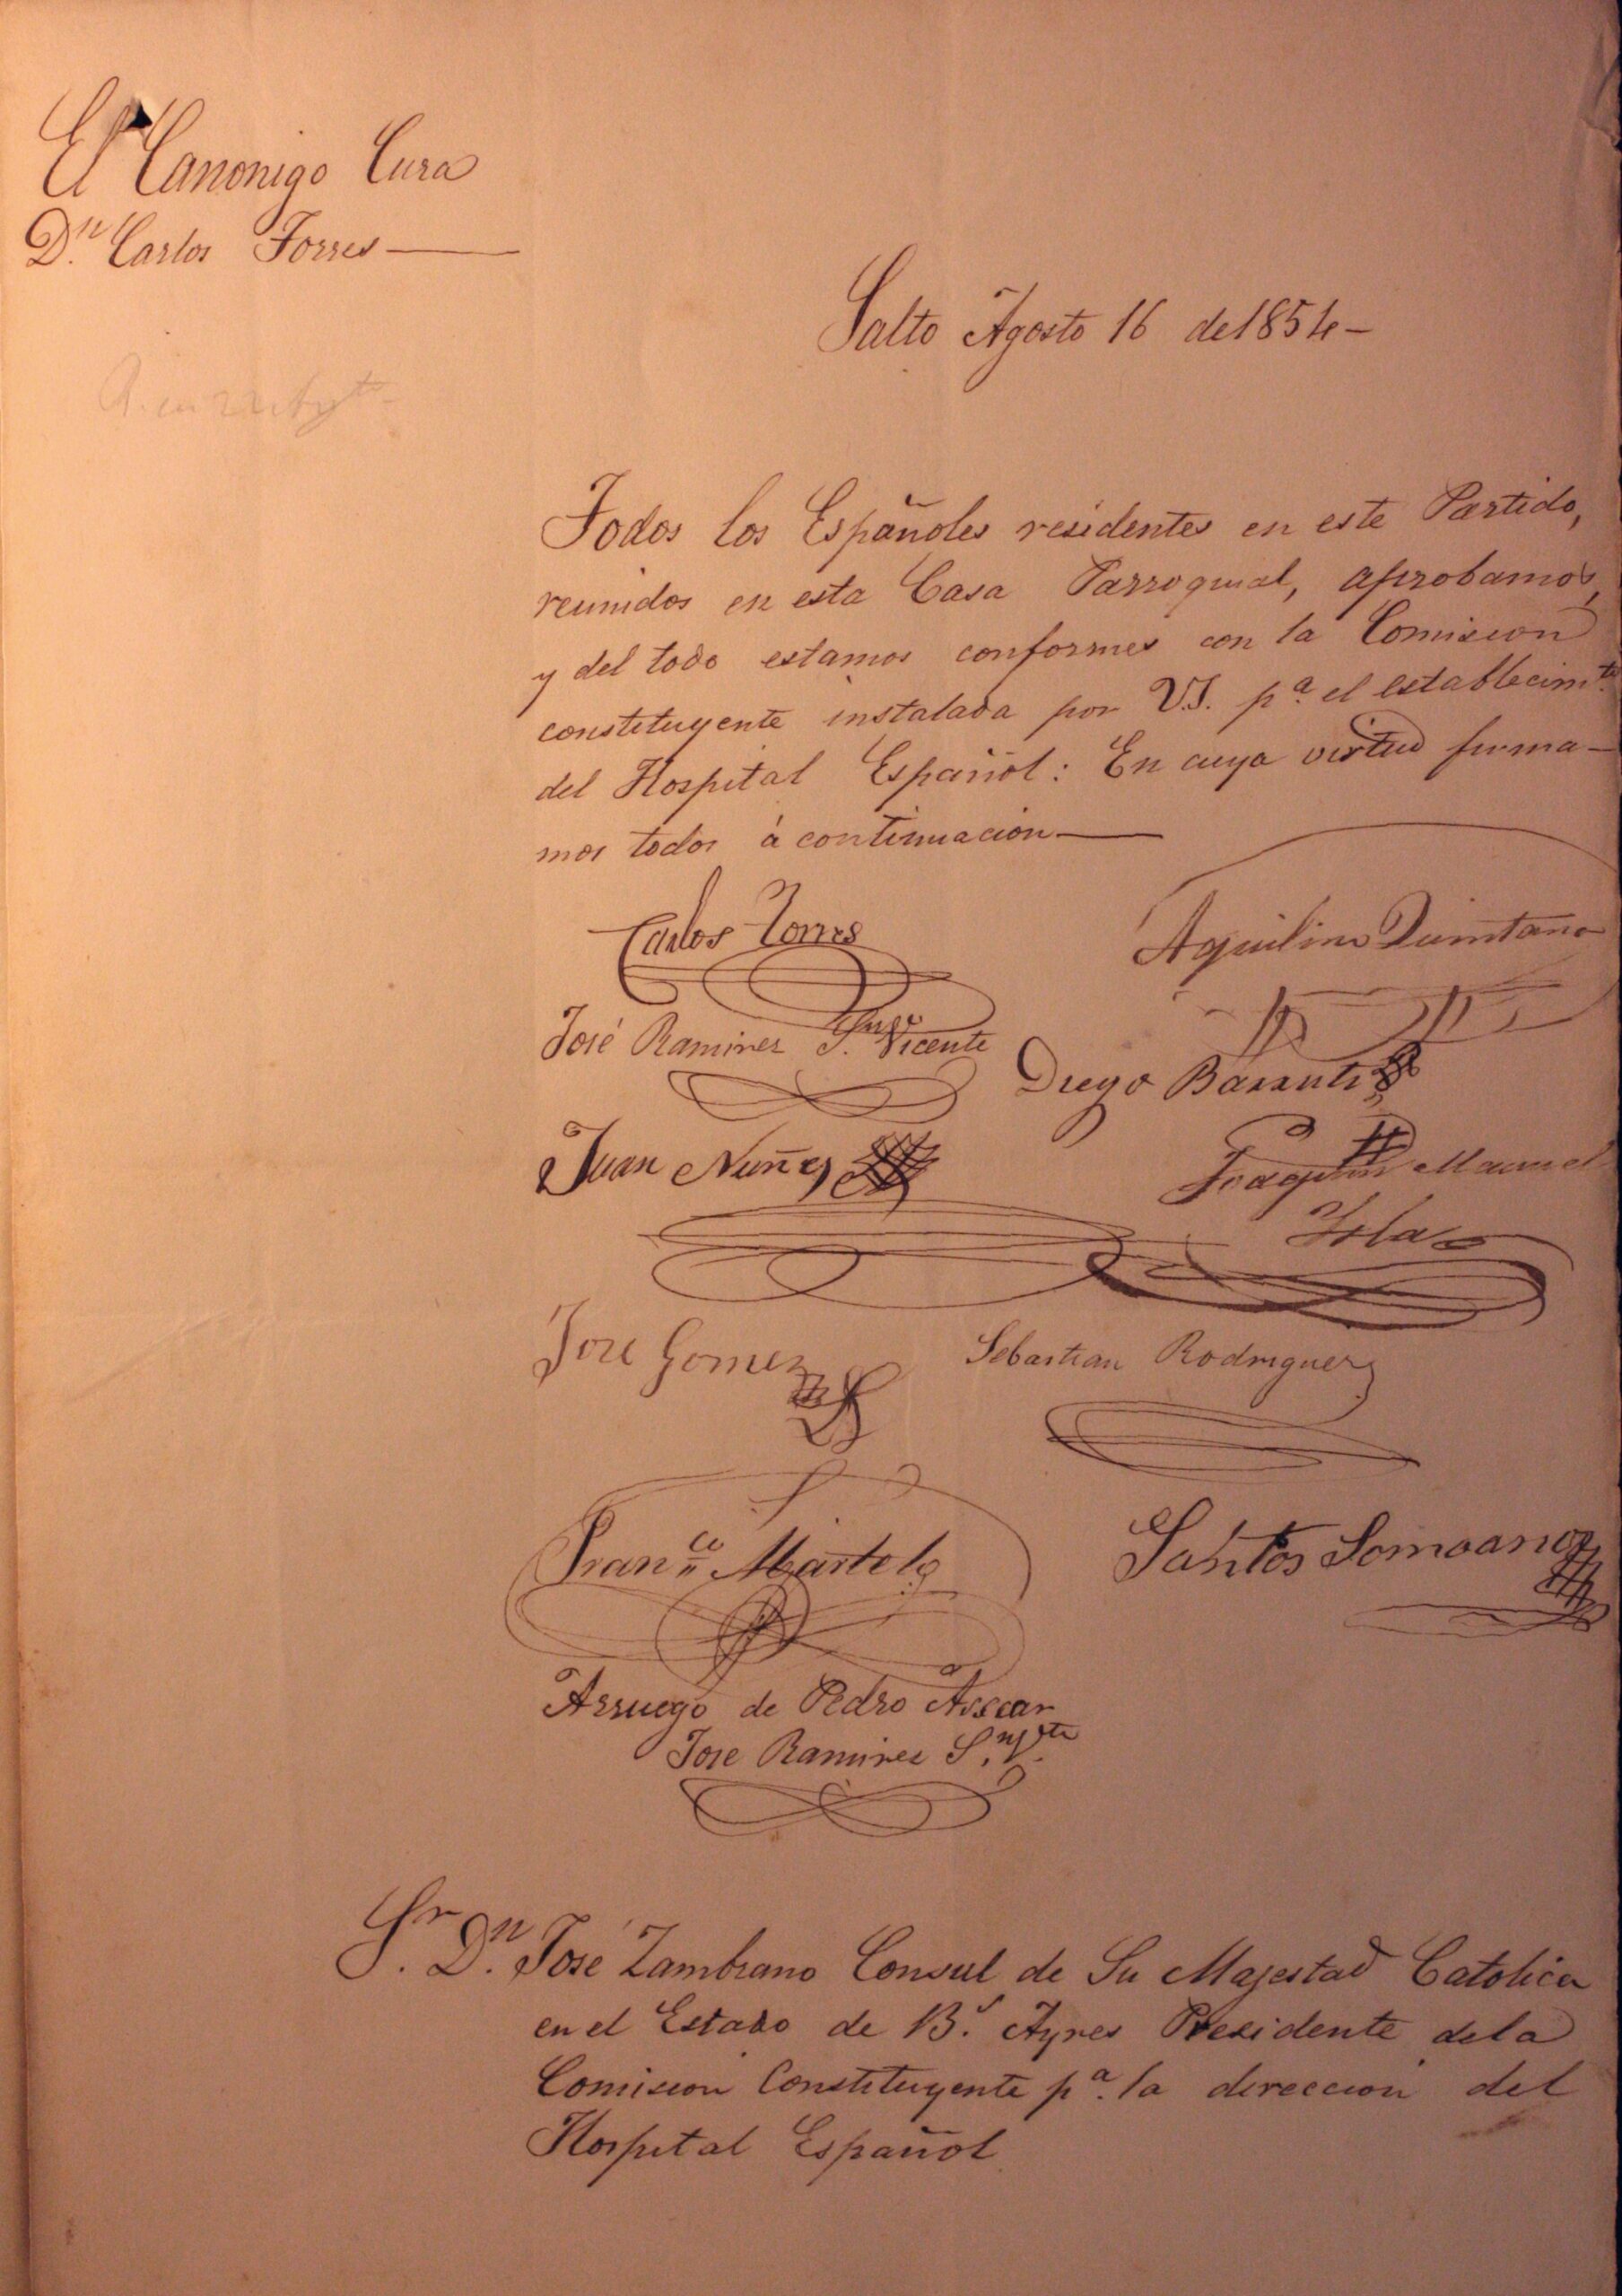 El Canonigo Cura
D.n Carlos Torres
Salto Agosto 16 de 1854
Todos los Españoles residentes en este Partido,
reunidos en esta Casa Parroquial, aprobamos,
y del todo estamos conformes con la Comision
constituyente instalada por V.S. p.a el establecim.to
del Hospital Español: En cuya virtud firma-
mos todos á continuacion
Carlos Torres
Aquilino Quintana
José Ramirez S.n Vicente
Diego
Juan Nuñez
Joaquin Manuel
Ysla
José Gomez
Sebastian Rodriguez
Fran.co Martelo
Santos Somoano
Arruego de Pedro
José Ramirez S.n V.te
S.r D.n José Zambrano Consul de Su Majestad Catolica
en el Estado de B.s Ayres Presidente de la
Comision Constituyente p.a la direccion del
Hospital Español